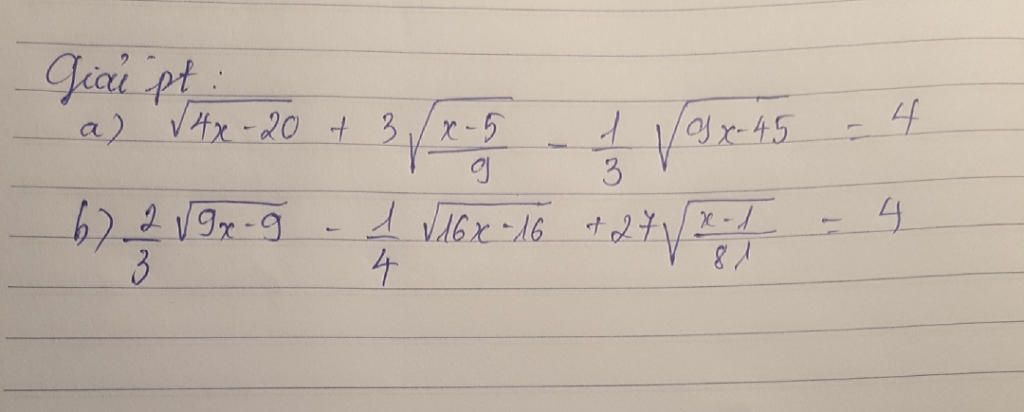 Giải pt :
a) √(4x-20) + 3√((x-5)/9) - 1/3 √(9x-45) = 4
b) 2/3 √(9x-9) - 1/4 √(16x-16) + 27√((x-1)/81) = 4